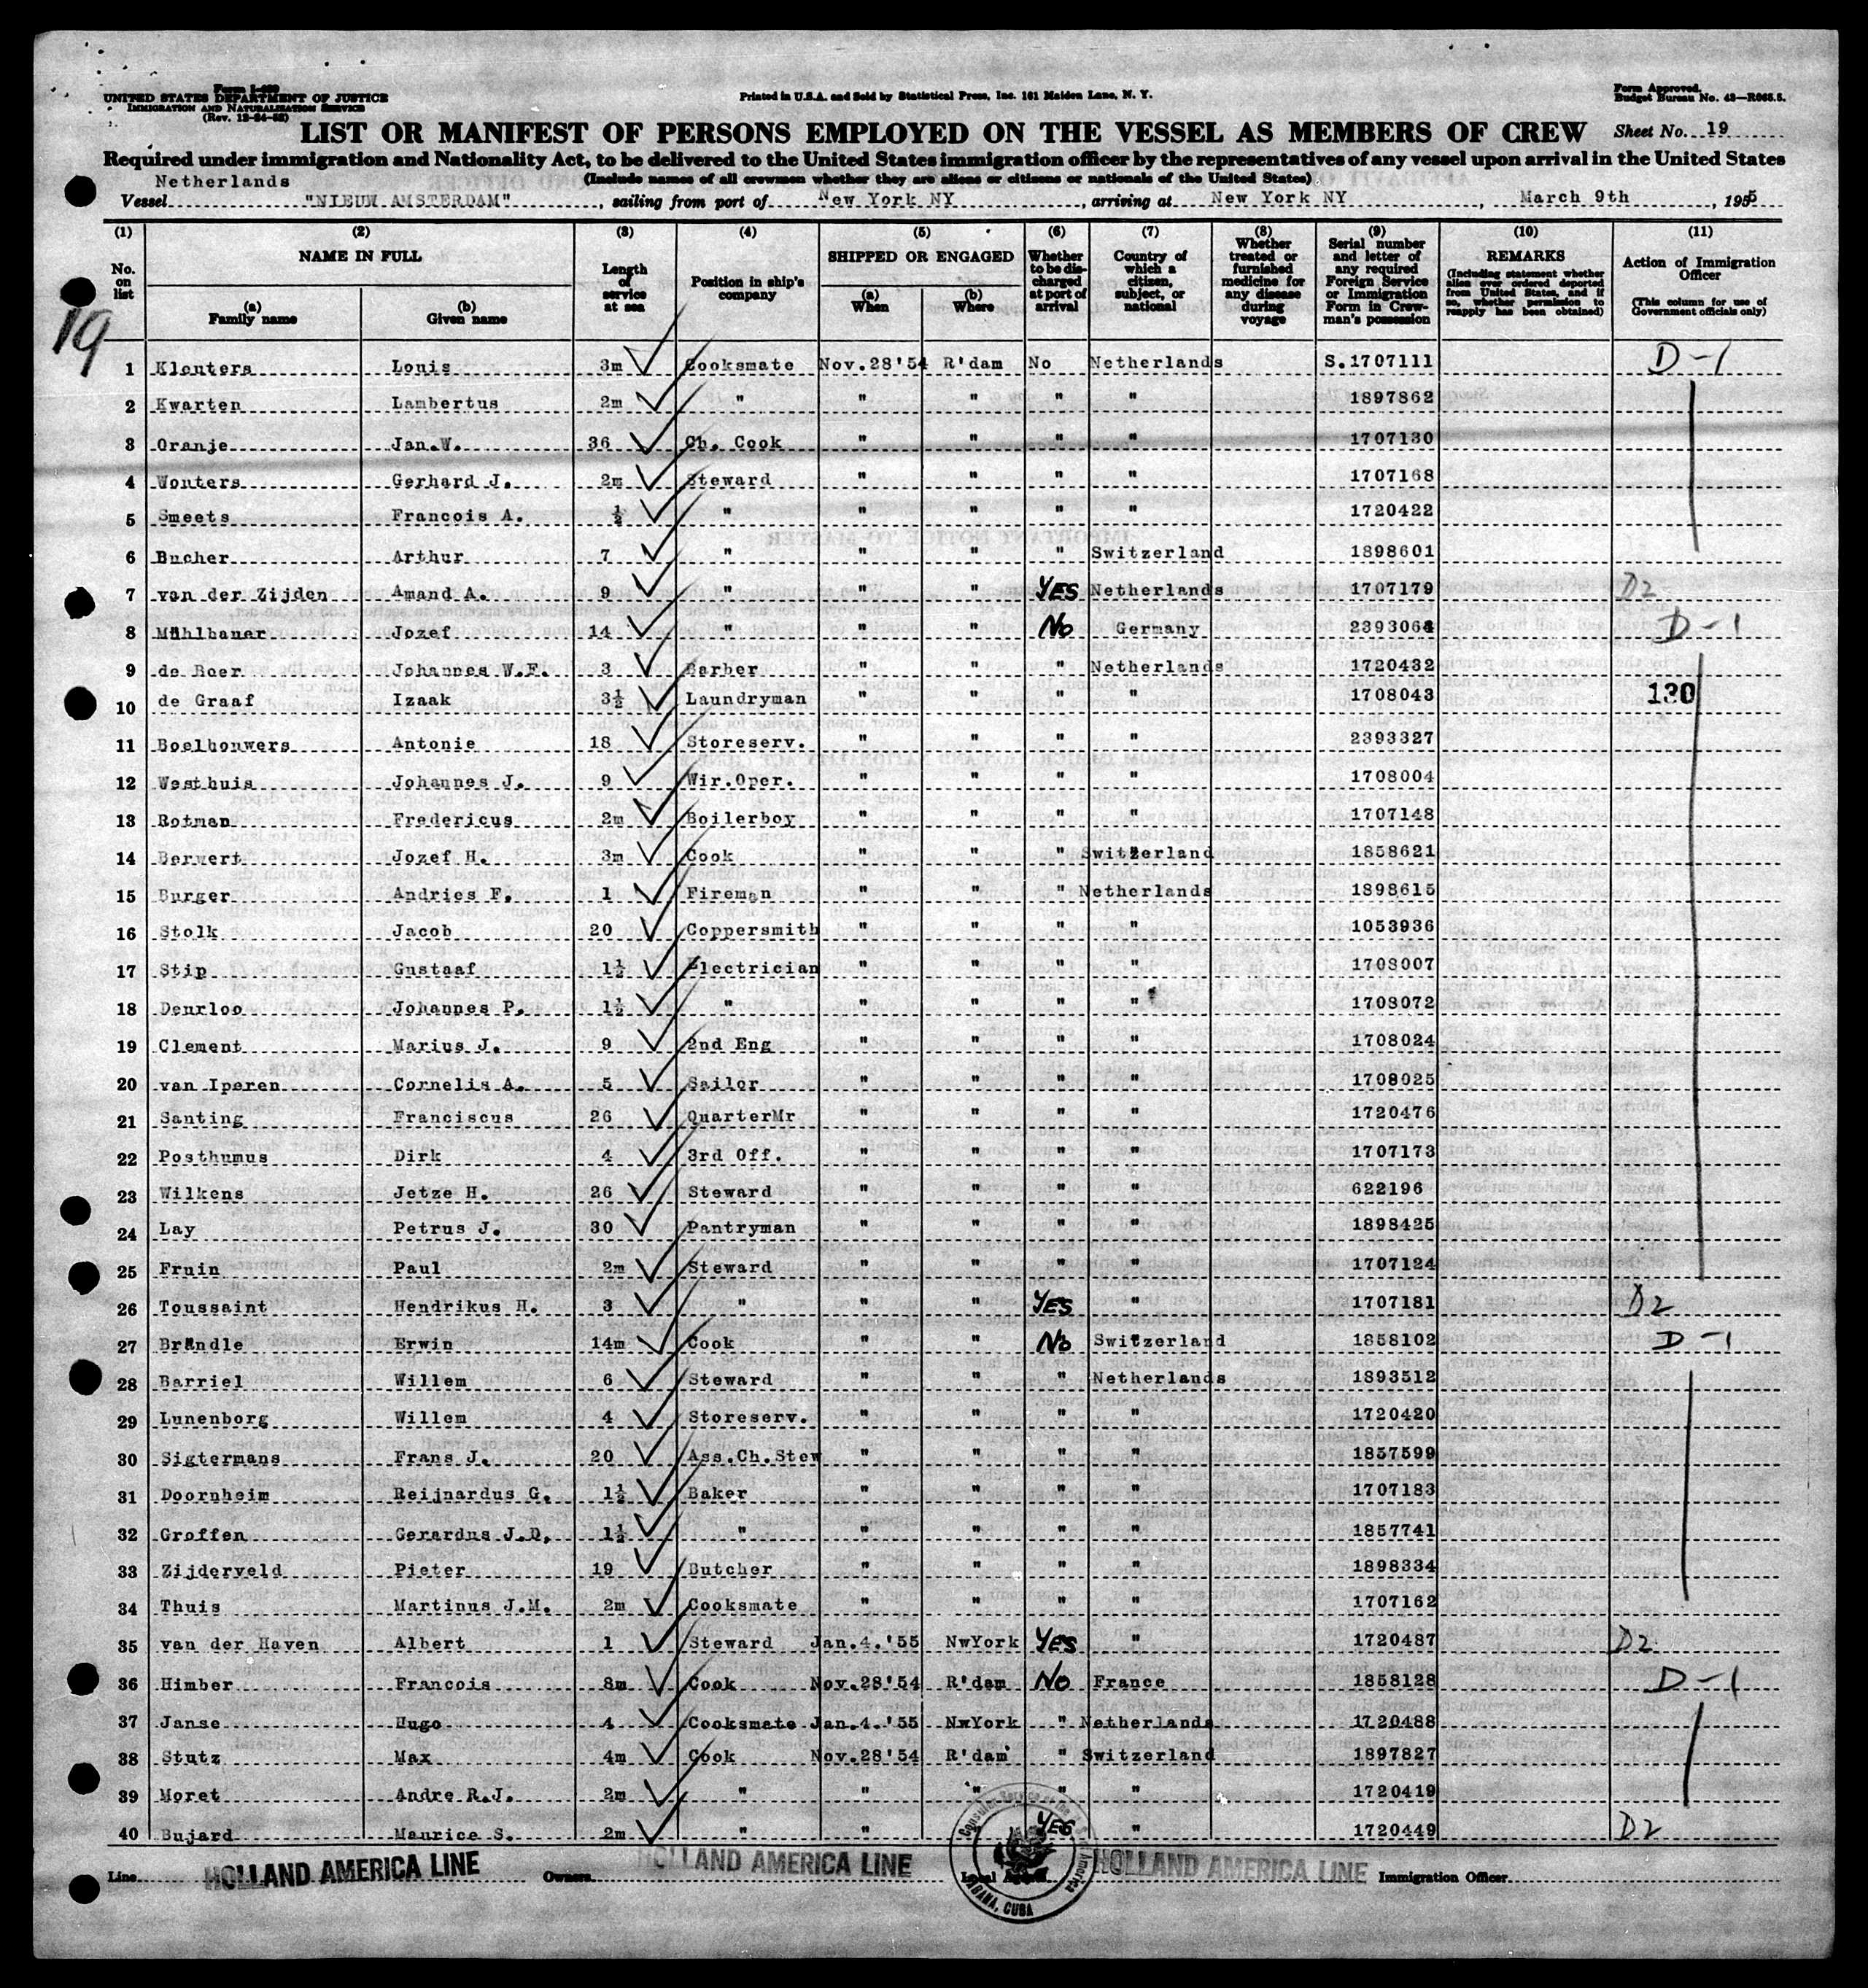 Form I-489
UNITED STATES DEPARTMENT OF JUSTICE
IMMIGRATION AND NATURALIZATION SERVICE
(Rev. 12-24-52)
Printed in U.S.A. and Sold by Statistical Press, Inc. 161 Maiden Lane, N. Y.
Form Approved.
Budget Bureau No. 43—R065.5.
LIST OR MANIFEST OF PERSONS EMPLOYED ON THE VESSEL AS MEMBERS OF CREW Sheet No. 19
Required under immigration and Nationality Act, to be delivered to the United States immigration officer by the representatives of any vessel upon arrival in the United States
(Include names of all crewmen whether they are aliens or citizens or nationals of the United States)
Netherlands
Vessel "NIEUW AMSTERDAM", sailing from port of New York NY, arriving at New York NY, March 9th, 1955
(1) (2) (3) (4) (5) (6) (7) (8) (9) (10) (11)
No. on list
NAME IN FULL
(a) Family name
(b) Given name
Length of service at sea
Position in ship's company
SHIPPED OR ENGAGED
(a) When
(b) Where
Whether to be discharged at port of arrival
Country of which a citizen, subject, or national
Whether treated or furnished medicine for any disease during voyage
Serial number and letter of any required Foreign Service or Immigration Form in Crewman's possession
REMARKS
(Including statement whether alien ever ordered deported from United States, and if so, whether permission to reapply has been obtained)
Action of Immigration Officer
(This column for use of Government officials only)
19
1 Kleuters Louis 3m Cooksmate Nov.28'54 R'dam No Netherlands S.1707111 D-1
2 Kwarten Lambertus 2m " " " " " 1897862
3 Oranje Jan.W. 36 Ch. Cook " " " " 1707130
4 Wouters Gerhard J. 2m Steward " " " " 1707168
5 Smeets Francois A. ½ " " " " " 1720422
6 Bucher Arthur 7 " " " " Switzerland 1898601
7 van der Zijden Amand A. 9 " " " YES Netherlands 1707179 D2
8 Mühlbauer Jozef 14 " " " No Germany 2393064 D-1
9 de Boer Johannes W.F. 3 Barber " " " Netherlands 1720432
10 de Graaf Izaak 3½ Laundryman " " " " 1708043 130
11 Boelhouwers Antonie 18 Storeserv. " " " " 2393327
12 Westhuis Johannes J. 9 Wir.Oper. " " " " 1708004
13 Rotman Fredericus 2m Boilerboy " " " " 1707148
14 Berwert Jozef H. 3m Cook " " " Switzerland 1858621
15 Burger Andries F. 1 Fireman " " " Netherlands 1898615
16 Stolk Jacob 20 Coppersmith " " " " 1053936
17 Stip Gustaaf 1½ Electrician " " " " 1708007
18 Deurloo Johannes P. 1½ " " " " " 1708072
19 Clement Marius J. 9 2nd Eng " " " " 1708024
20 van Iperen Cornelis A. 5 Sailor " " " " 1708025
21 Santing Franciscus 26 QuarterMr " " " " 1720476
22 Posthumus Dirk 4 3rd Off. " " " " 1707173
23 Wilkens Jetze H. 26 Steward " " " " 622196
24 Lay Petrus J. 30 Pantryman " " " " 1898425
25 Fruin Paul 2m Steward " " " " 1707124
26 Toussaint Hendrikus H. 3 " " " YES " 1707181 D2
27 Brändle Erwin 14m Cook " " No Switzerland 1858102 D-1
28 Barriel Willem 6 Steward " " " Netherlands 1893512
29 Lunenborg Willem 4 Storeserv. " " " " 1720420
30 Sigtermans Frans J. 20 Ass.Ch.Stew " " " " 1857599
31 Doornheim Reijnardus G. 1½ Baker " " " " 1707183
32 Groffen Gerardus J.D. 1½ " " " " " 1857741
33 Zijderveld Pieter 19 Butcher " " " " 1898334
34 Thuis Martinus J.M. 2m Cooksmate " " " " 1707162
35 van der Haven Albert 1 Steward Jan.4.'55 NwYork YES " 1720487 D2
36 Himber Francois 8m Cook Nov.28'54 R'dam No France 1858128 D-1
37 Janse Hugo 4 Cooksmate Jan.4.'55 NwYork " Netherlands 1720488
38 Stutz Max 4m Cook Nov.28'54 R'dam " Switzerland 1897827
39 Moret Andre R.J. 2m " " " " " 1720419
40 Bujard Maurice S. 2m " " YES " 1720449 D2
Line HOLLAND AMERICA LINE Owners HOLLAND AMERICA LINE Local Agents HOLLAND AMERICA LINE Immigration Officer
Consular Service of the America
HABANA, CUBA